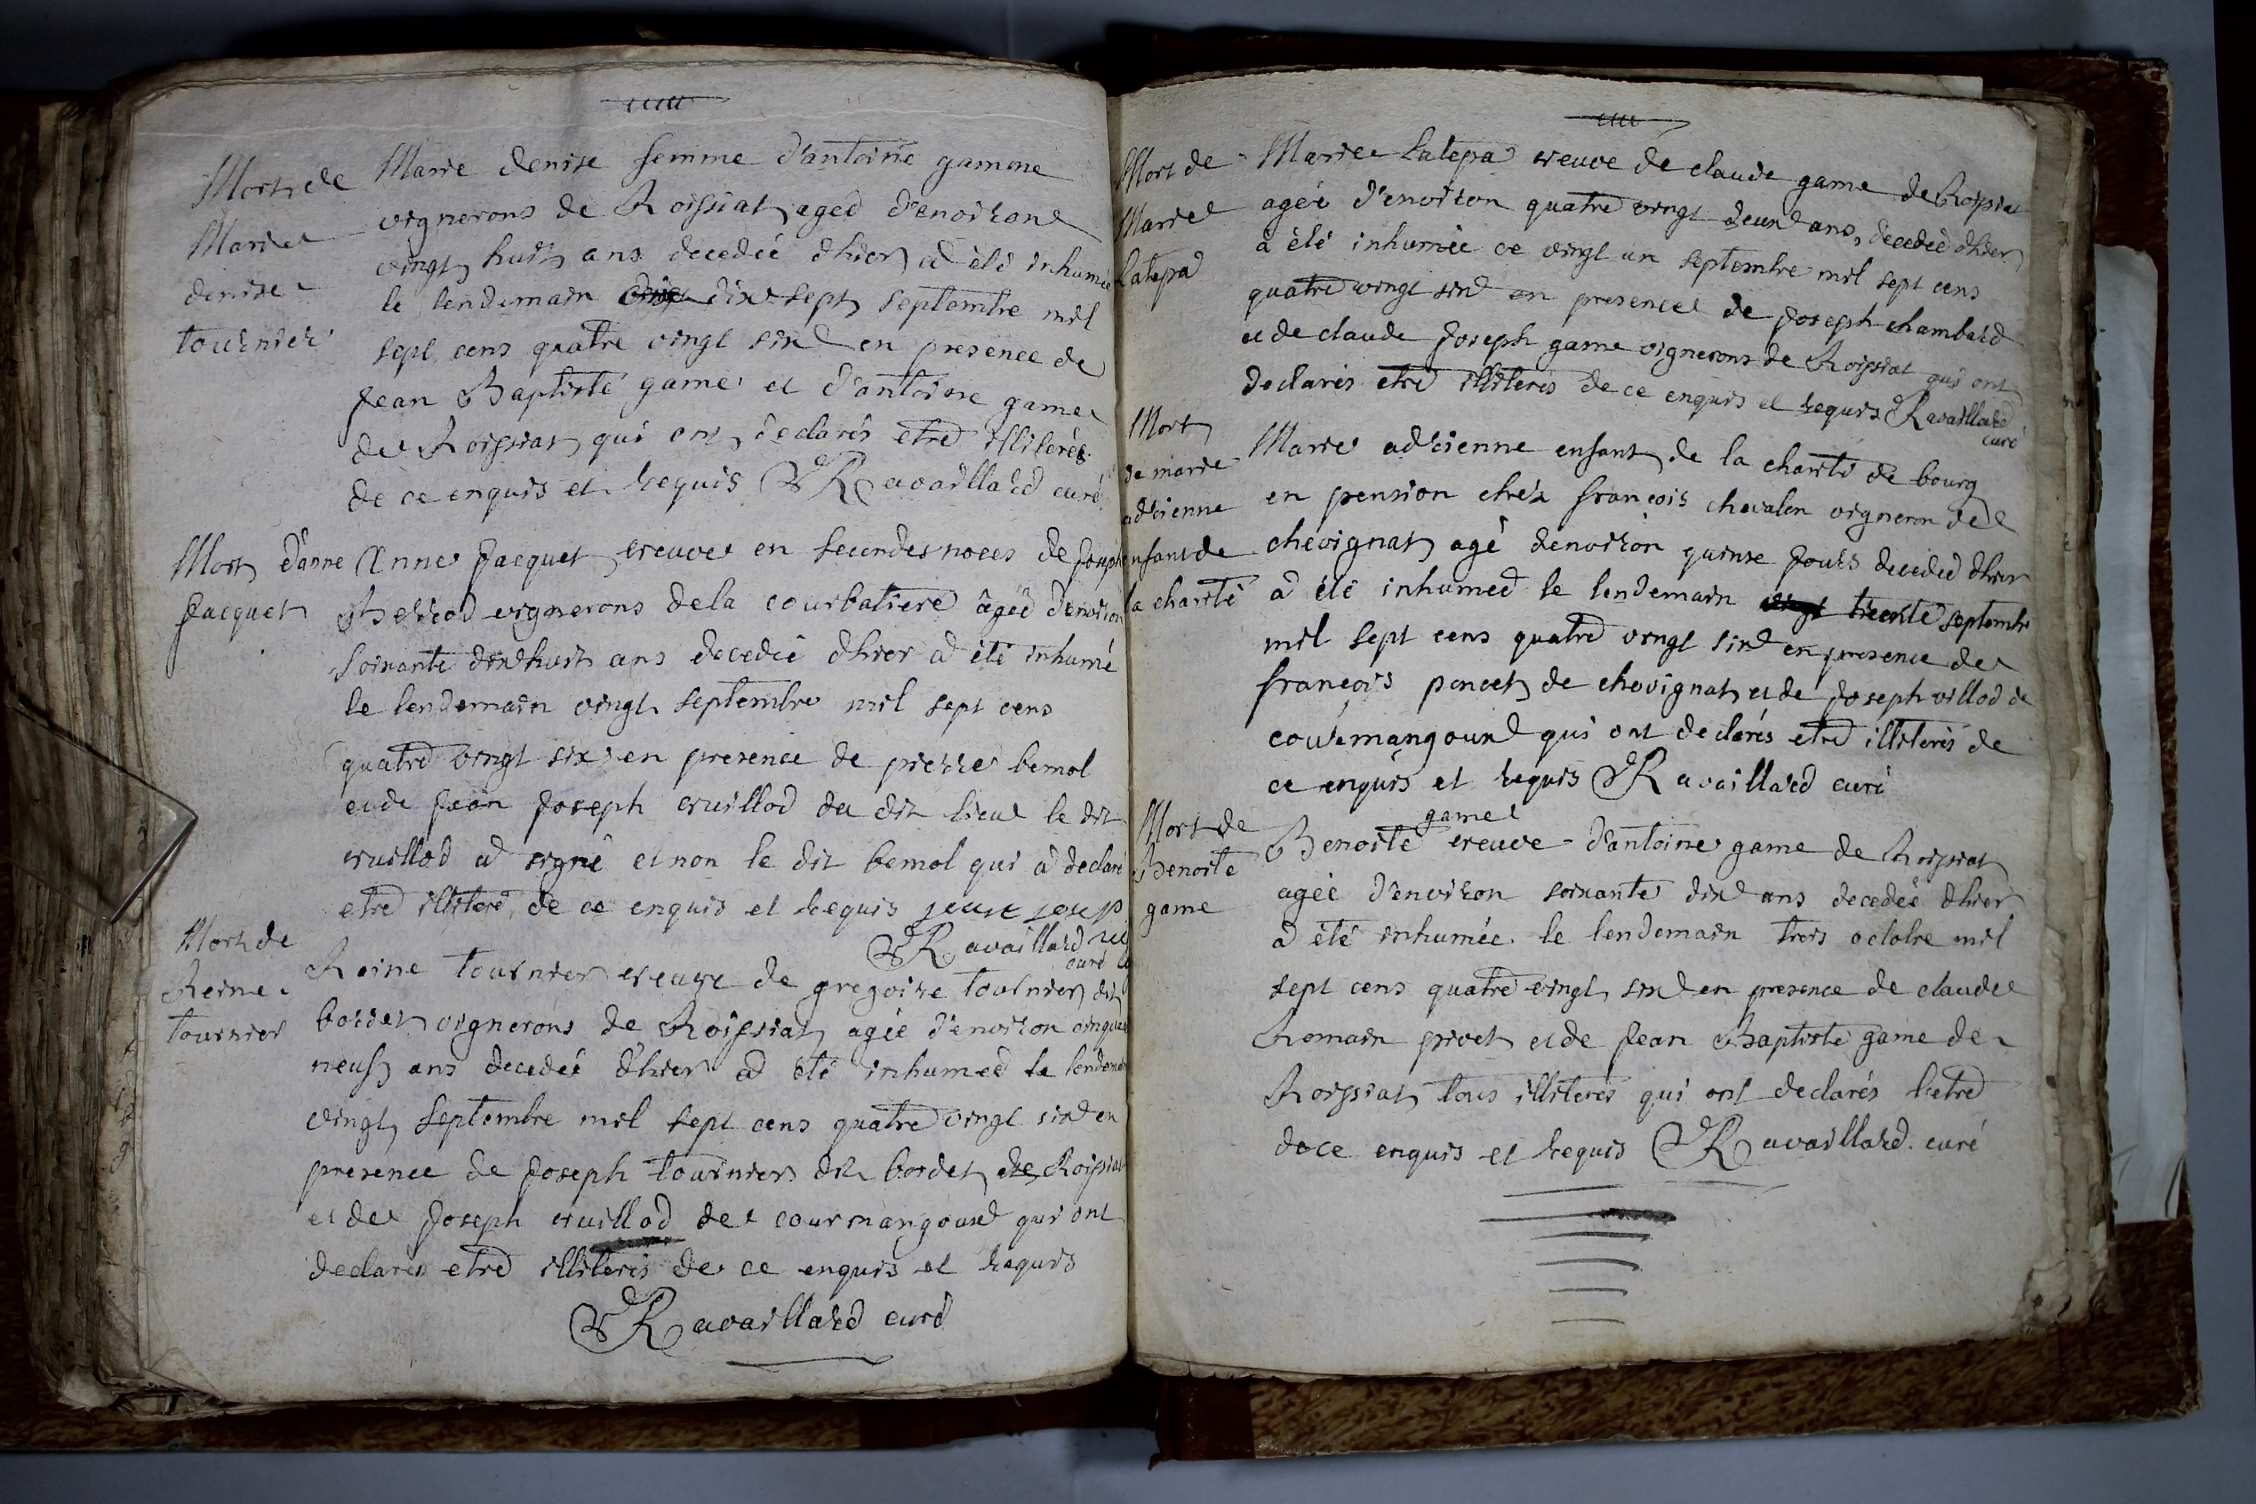 Mort de
Marie
denise
tournier
Marie denise femme d'antoine gamme
vignerons de Roissiat agéé d'environ
vingt huit ans decedéé d'hier a été inhuméé
le lendemain dix sept septembre mil
sept cens quatre vingt six en presence de
Jean Baptiste game et d'antoine game
de Roissiat qui ont declarés etre illiterés
de ce enquis et requis Ravaillard curé
Mort d'anne
Jacquet
Anne Jacquet veuve en secondes noces de Joseph
vignerons de la courbatiere agéé d'environ
soixante dix huit ans decedéé d'hier a été inhumé
le lendemain vingt septembre mil sept cens
quatre vingt six en presence de pierre bemol
et de Jean Joseph vuillod du dit lieu le dit
vuillod a signé et non le dit bemol qui a declaré
etre illiteré de ce enquis et requis
Ravaillard
curé
Mort de
Reine
tournier
Reine tournier veuve de gregoire tournier dit
bordet vignerons de Roissiat agéé d'environ cinquante
neuf ans decedéé d'hier a été inhuméé le lendemain
vingt septembre mil sept cens quatre vingt six en
presence de Joseph tournier dit bordet de Roissiat
et de Joseph vuillod de courmangoux qui ont
declarés etre illiterés de ce enquis et requis
Ravaillard curé
Mort de
Marie
Latepa
Marie Latepa veuve de claude game de Roissiat
agéé d'environ quatre vingt deux ans, decedéé d'hier
a été inhuméé ce vingt un septembre mil sept cens
quatre vingt six en presence de Joseph chambard
et de claude Joseph game vignerons de Roissiat qui ont
declarés etre illiterés de ce enquis et requis Ravaillard
curé
Mort
de marie
adrienne
enfant de
la charité
Marie adrienne enfant de la charité de bourg
en pension chéz françois chevalon vigneron de
chevignat agé denviron quinse jours decedéé d'hier
a été inhuméé le lendemain trente septembre
mil sept cens quatre vingt six en presence de
françois poncet de chevignat et de Joseph villod de
courmangoux qui ont declarés etre illiterés de
ce enquis et requis Ravaillard curé
Mort de
Benoite
game
game
Benoite veuve d'antoine game de Roissiat
agéé d'environ soixante dix ans decedéé d'hier
a été inhuméé le lendemain trois octobre mil
sept cens quatre vingt six en presence de claude
Romain privet et de Jean Baptiste game de
Roissiat tous illiterés qui ont declarés l'etre
de ce enquis et requis Ravaillard curé